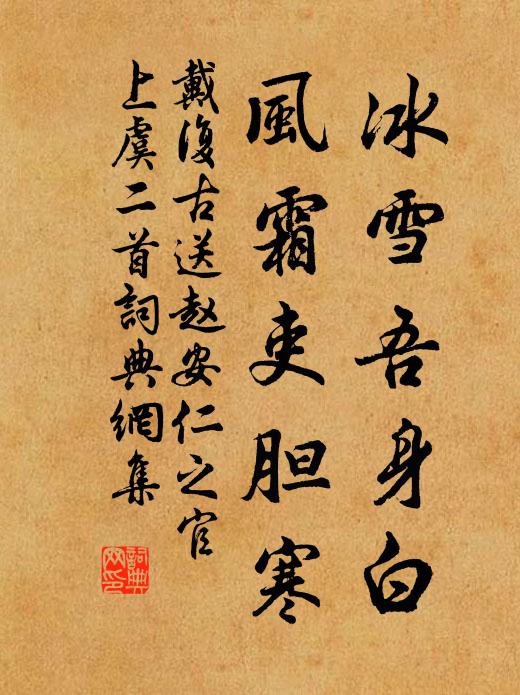 冰雪吾身白
風霜吏胆寒
戴復古送赵安仁之官
上虞二首詞典網集
詞典網印